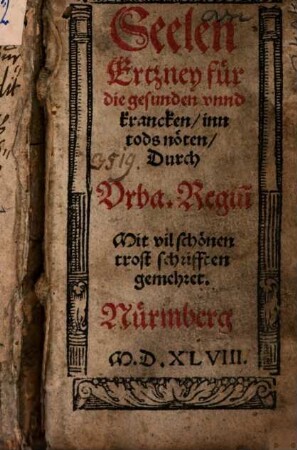 Seelen
Ertzney für
die gesunden vnnd
krancken/ inn
tods nöten/
Durch
Vrba. Regiū
Mit vil schönen
trost schrifften
gemehret.
Nürmberg
M. D. XLVIII.